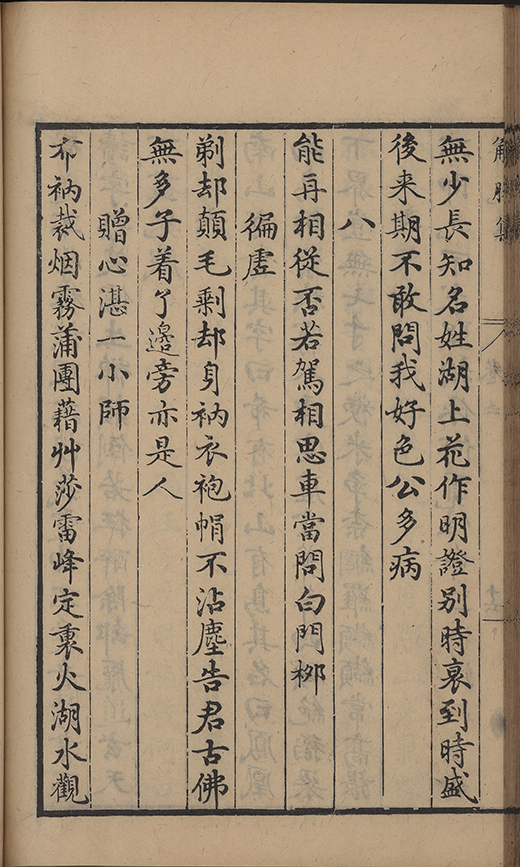 解脫集
無少長知名姓湖上花作明證別時衰到時盛
後来期不敢問我好色公多病
八
能再相從否若駕相思車當問白門桞
徧虗
剃却顛毛剩却身衲衣袍帽不沾塵告君古佛
無多子着了邊旁亦是人
贈心湛一小師
布衲裁烟霧蒲團藉艸莎雷峰定裏火湖水觀